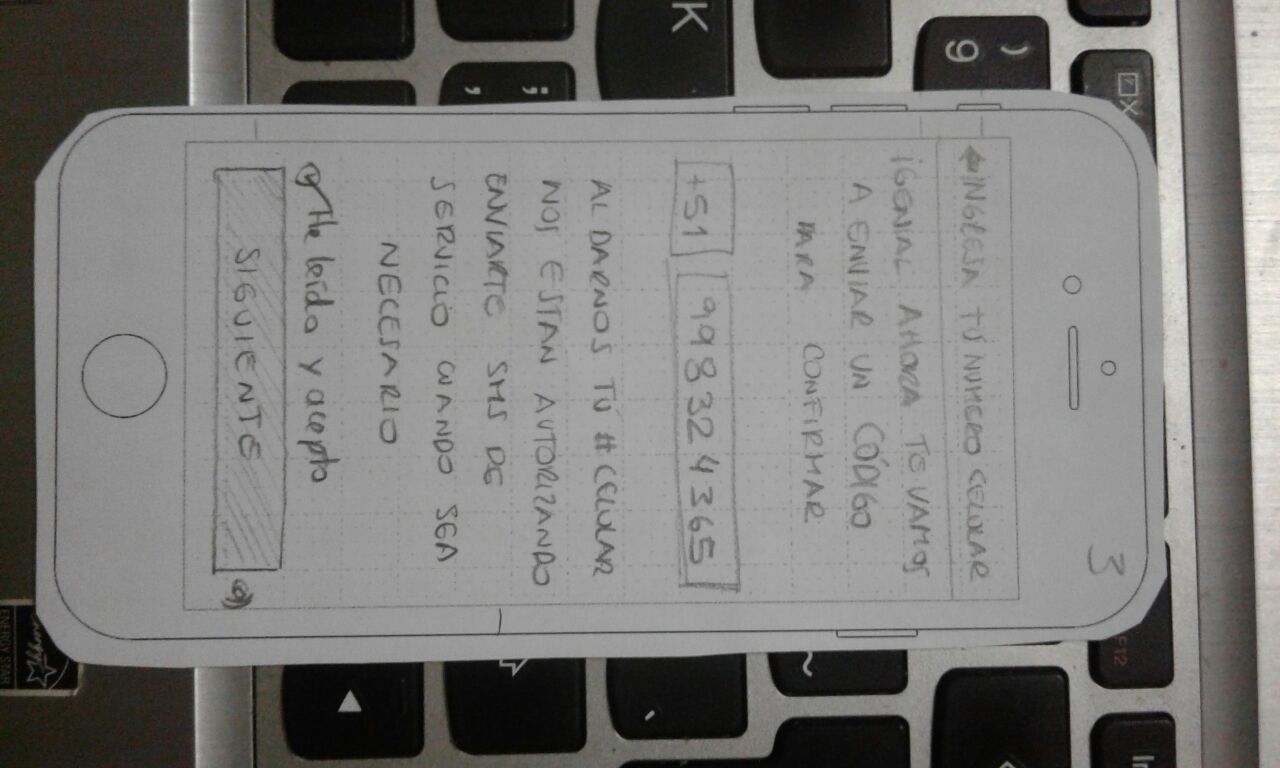 3
← INGRESA TU NUMERO CELULAR
¡GENIAL AHORA TE VAMOS
A ENVIAR UN CÓDIGO
PARA CONFIRMAR
+51 998324365
AL DARNOS TU # CELULAR
NOS ESTAN AUTORIZANDO
ENVIARTE SMS DE
SERVICIO CUANDO SEA
NECESARIO
He leído y acepto
SIGUIENTE
a)
K
)
9
;
,
F12
ENERGY STAR